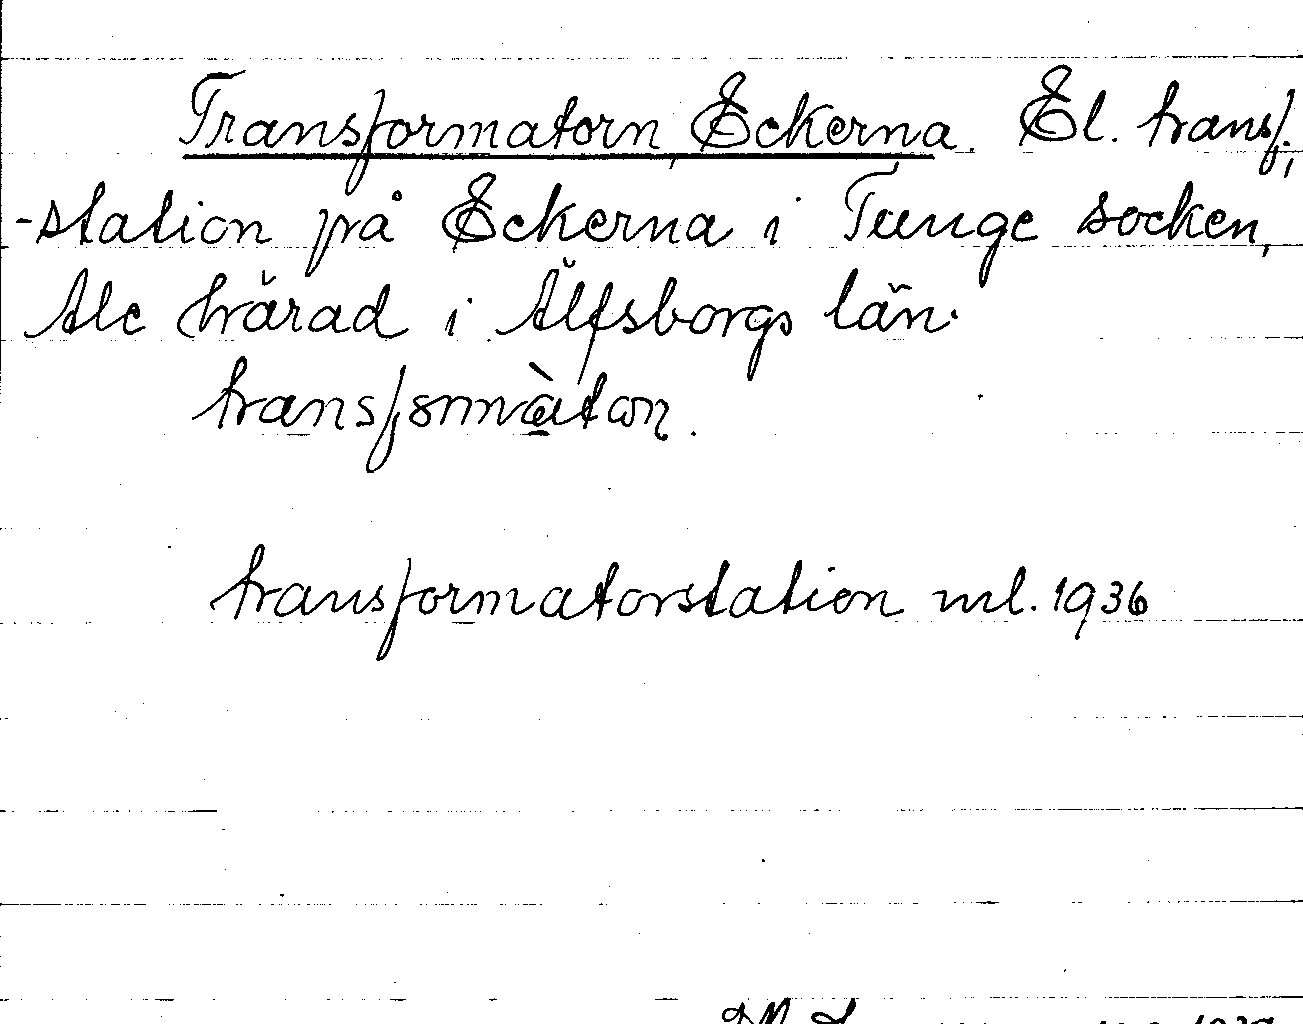 Transformatorn, Eckerna. El. transf.
-station på Eckerna i Tunge socken,
Ale härad i Älfsborgs län.
transfɔrmàtɑn.
transformatorstation ml. 1936